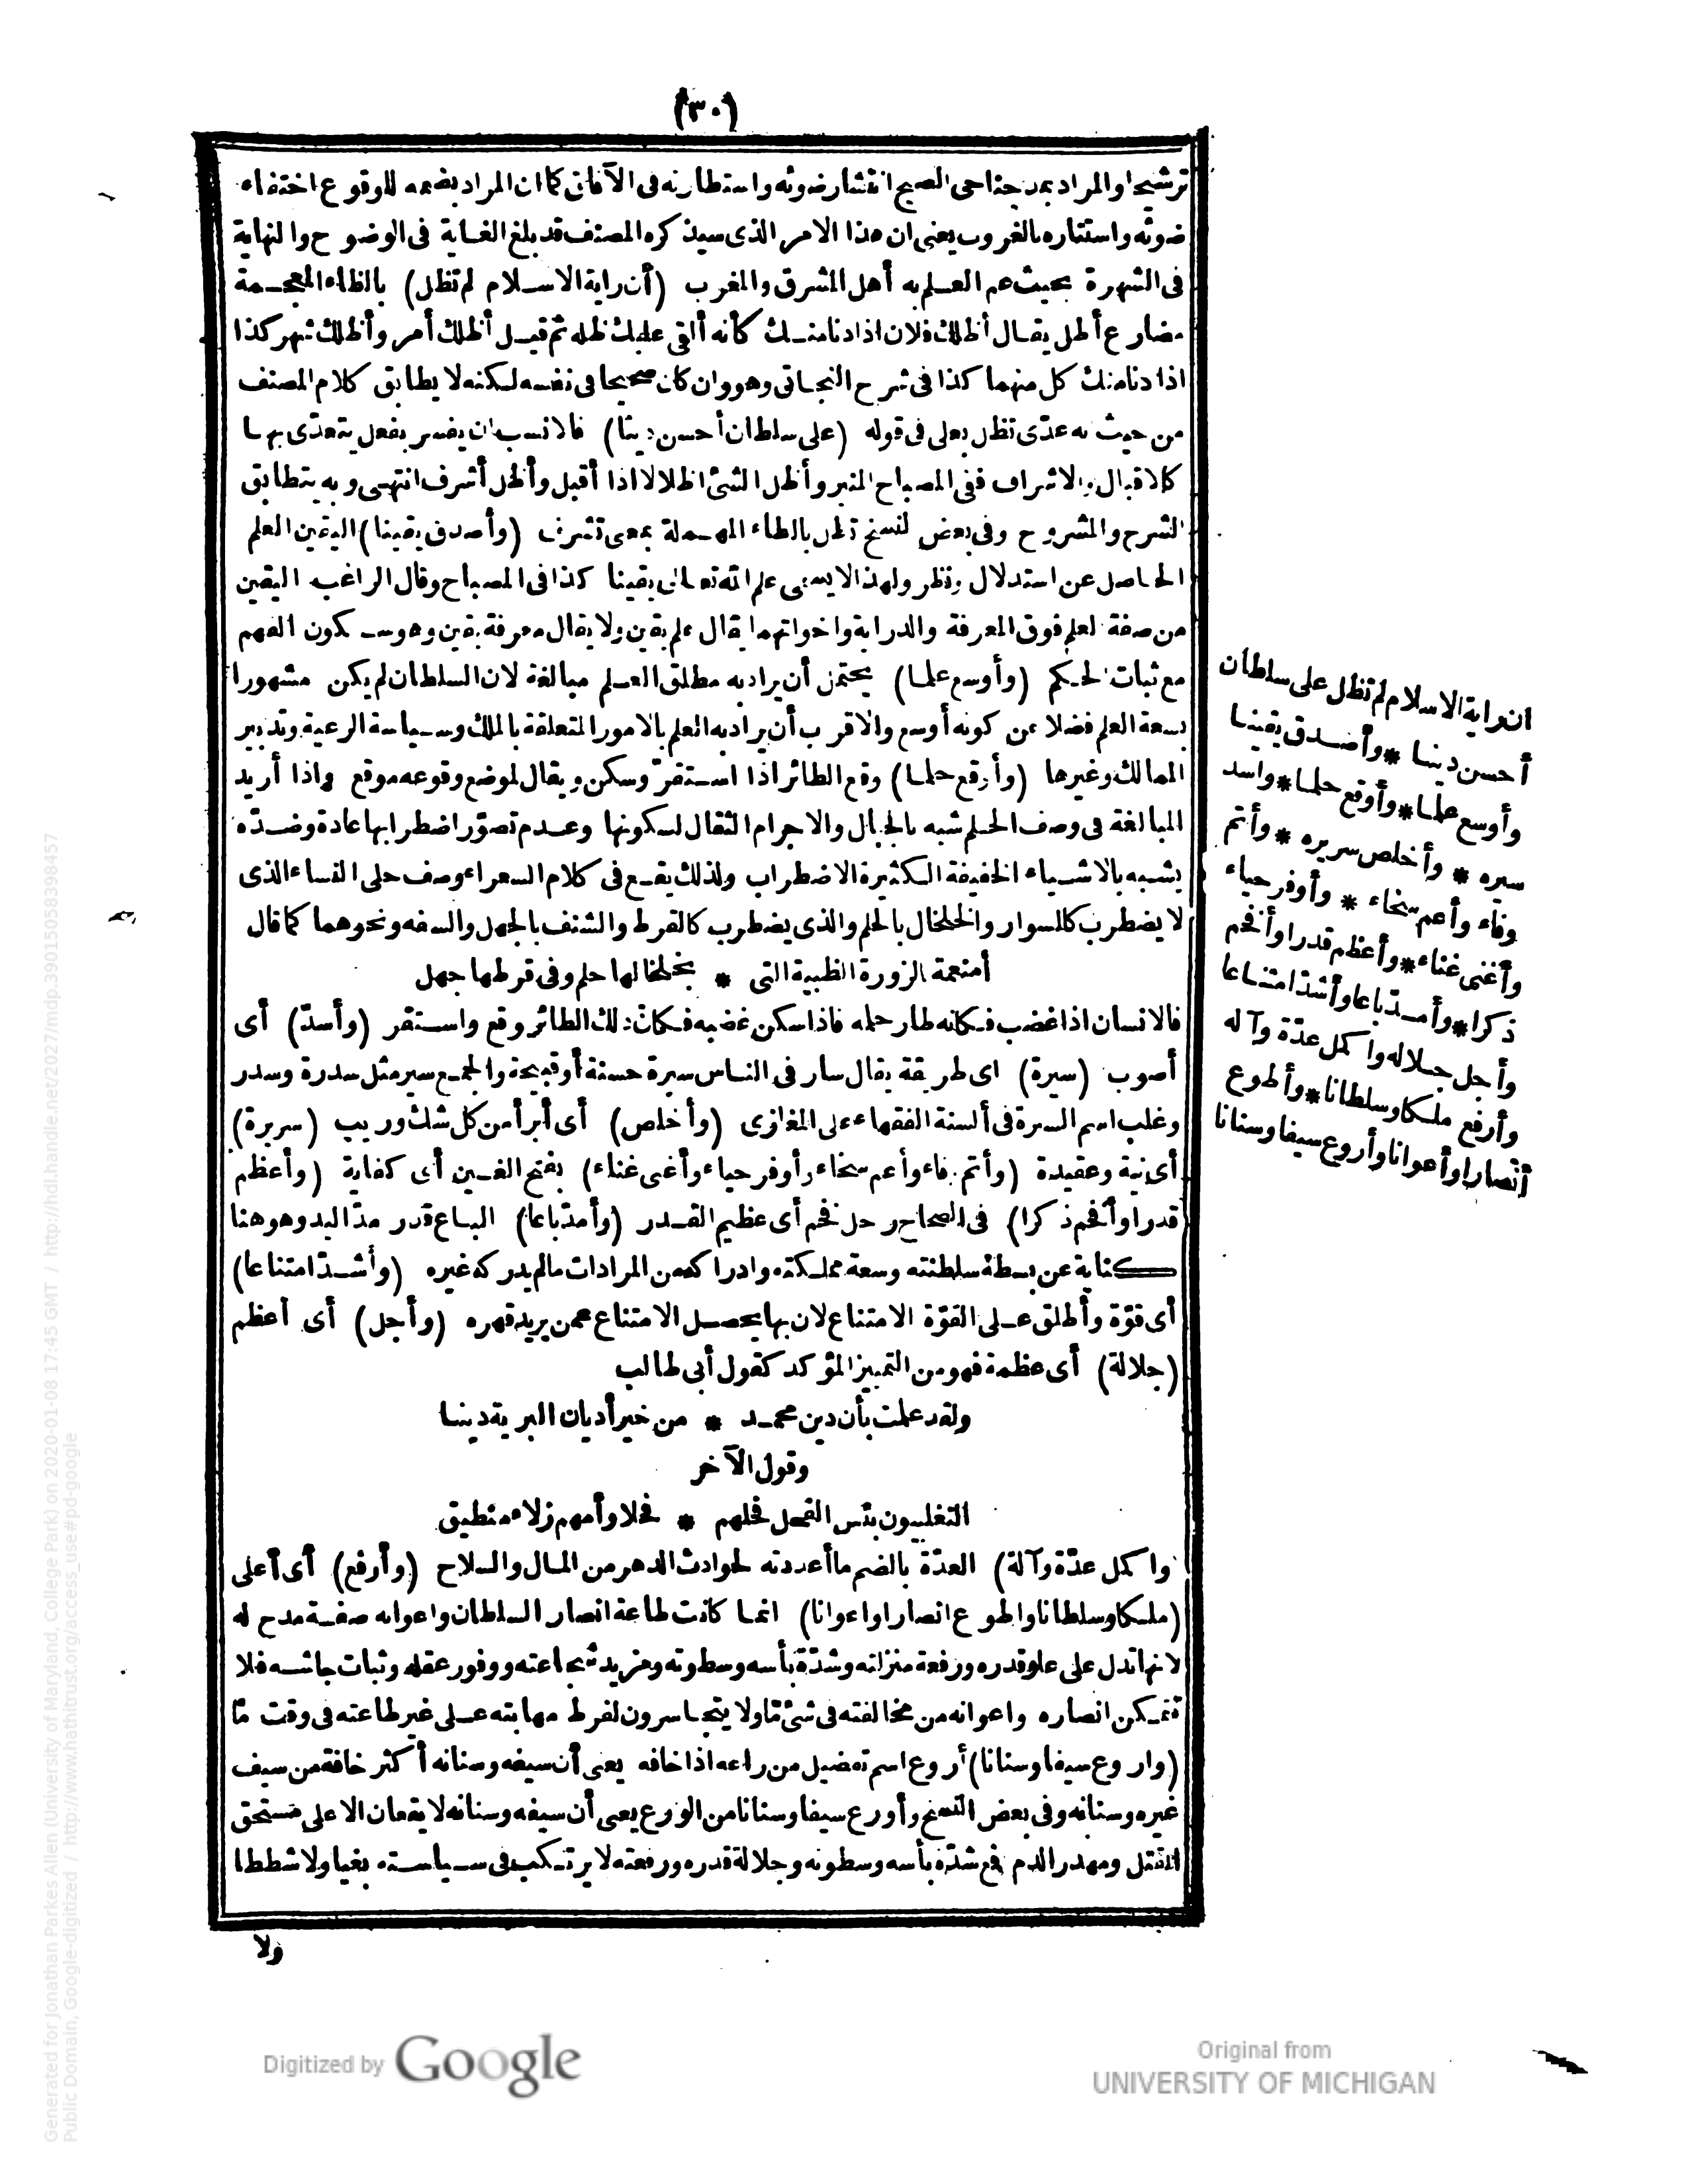 (٣٠)
ترشيحا والمراد بمد جناحى الصبح انتشار ضوئه واستطارته فى الآفاق كما ان المراد بضمه للوقوع اختفاء
ضوئه واستتاره بالغروب يعنى ان هذا الامر الذى سيذكره المصنف قد بلغ الغاية فى الوضوح والنهاية
فى الشهرة بحيث عم العلم به أهل المشرق والمغرب (أن راية الاسلام لم تظل) بالظاء المعجمة
مضارع أظل يقال أظلك فلان اذا دنا منك كأنه ألقى عليك ظله ثم قيل أظلك أمر وأظلك شهر كذا
اذا دنا منك كل منهما كذا فى شرح النجاتى وهو وان كان صحيحا فى نفسه لكنه لا يطابق كلام المصنف
من حيث انه عدّى تظل بعلى فى قوله (على سلطان أحسن دينا) فالانسب ان يفسر بفعل يتعدّى بها
كالاقبال والاشراف ففى المصباح المنير وأظل الشئ اظلالا اذا أقبل وأظل أشرف انتهى وبه يتطابق
الشرح والمشروح وفى بعض النسخ تطل بالطاء المهملة بمعنى تشرف (وأصدق يقينا) اليقين العلم
الحاصل عن استدلال ونظر ولهذا لا يسمى علم الله تعالى يقينا كذا فى المصباح وقال الراغب اليقين
من صفة العلم فوق المعرفة والدراية واخواتهما يقال علم يقين ولا يقال معرفة يقين وهو سكون الفهم
مع ثبات الحكم (وأوسع علما) يحتمل أن يراد به مطلق العلم مبالغة لان السلطان لم يكن مشهورا
بسعة العلم فضلا عن كونه أوسع والاقرب أن يراد به العلم بالامور المتعلقة بالملك وسياسة الرعية وتدبير
الممالك وغيرها (وأوقع حلما) وقع الطائر اذا استقرّ وسكن ويقال لموضع وقوعه موقع واذا أريد
المبالغة فى وصف الحلم شبه بالجبال والاجرام الثقال لسكونها وعدم تصوّر اضطرابها عادة وضدّه
يشبه بالاشياء الخفيفة الكثيرة الاضطراب ولذلك يقع فى كلام الشعراء وصف حلى النساء الذى
لا يضطرب كالسوار والخلخال بالحلم والذى يضطرب كالقرط والشنف بالجهل والسفه ونحوهما كما قال
أمنعمة الزورة الظبية التى * بخلخالها حلم وفى قرطها جهل
فالانسان اذا غضب فكانه طار حلمه فاذا سكن غضبه فكان ذلك الطائر وقع واستقر (وأسدّ) أى
أصوب (سيرة) اى طريقة يقال سار فى الناس سيرة حسنة أو قبيحة والجمع سير مثل سدرة وسدر
وغلب اسم السيرة فى ألسنة الفقهاء على المغازى (وأخلص) أى أبرأ من كل شك وريب (سريرة)
أى نية وعقيدة (وأتم وفاء وأعم سخاء وأوفر حياء وأغنى غناء) بفتح الغين أى كفاية (وأعظم
قدرا وأفخم ذكرا) فى الصحاح رجل فخم أى عظيم القدر (وأمدّ باعا) الباع قدر مدّ اليد وهو هنا
كناية عن بسطة سلطنته وسعة مملكته وادراكه من المرادات مالم يدركه غيره (وأشدّ امتناعا)
أى قوّة وأطلق على القوّة الامتناع لان بها يحصل الامتناع ممن يريد قهره (وأجل) أى أعظم
(جلالة) أى عظمة فهو من التمييز المؤكد كقول أبى طالب
ولقد علمت بأن دين محمد * من خير أديان البرية دينا
وقول الآخر
التغلبيون بئس الفحل فحلهم * فحلا وأمهم زلاء منطيق
(واكمل عدّة وآلة) العدّة بالضم ما أعددته لحوادث الدهر من المال والسلاح (وأرفع) أى أعلى
(ملكا وسلطانا واطوع انصارا واعوانا) انما كانت طاعة انصار السلطان واعوانه صفة مدح له
لانها تدل على علو قدره ورفعة منزلته وشدّة بأسه وسطوته ومزيد شجاعته ووفور عقله وثبات جاشه فلا
تتمكن انصاره واعوانه من مخالفته فى شئ مّا ولا يتجاسرون لفرط مهابته على غير طاعته فى وقت مّا
(واروع سيفا وسنانا) أروع اسم تفضيل من راعه اذا خافه يعنى أن سيفه وسنانه أكثر خافة من سيف
غيره وسنانه وفى بعض النسخ وأورع سيفا وسنانا من الورع يعنى أن سيفه وسنانه لا يقعان الا على مستحق
القتل ومهدر الدم فمع شدّة بأسه وسطوته وجلالة قدره ورفعته لا يرتكب فى سياسته بغيا ولا شططا
ولا
ان راية الاسلام لم تظل على سلطان
أحسن دينا * وأصدق يقينا
وأوسع علما * وأوقع حلما * واسد
سيره * وأخلص سريره * وأتم
وفاء وأعم سخاء * وأوفر حياء
وأغنى غناء * وأعظم قدرا وأفخم
ذكرا * وأمدّ باعا وأشدّ امتناعا
وأجل جلاله واكمل عدّة وآله
وأرفع ملكا وسلطانا * وأطوع
أنصارا وأعوانا وأروع سيفا وسنانا
Digitized by Google
Original from
UNIVERSITY OF MICHIGAN
Generated for Jonathan Parkes Allen (University of Maryland, College Park) on 2020-01-08 17:45 GMT / http://hdl.handle.net/2027/mdp.39015058398457
Public Domain, Google-digitized / http://www.hathitrust.org/access_use#pd-google